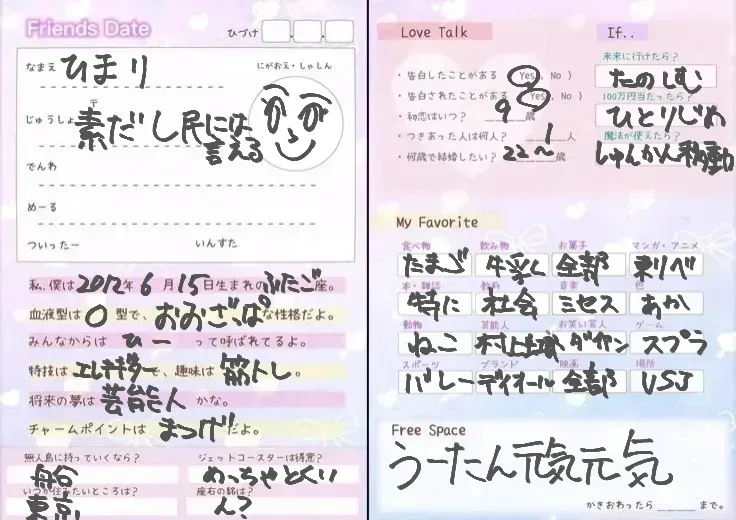 Friends Date
ひづけ
なまえ ひまり
にがおえ・しゃしん
〒
じゅうしょ 素だし民には言える
でんわ
めーる
ついったー いんすた
私、僕は2012年6月15日生まれのふたご座。
血液型はO型で、おおざっぱな性格だよ。
みんなからはひーって呼ばれてるよ。
特技はエレキギターで、趣味は筋トレ。
将来の夢は芸能人かな。
チャームポイントはまつげだよ。
無人島に持っていくなら? ジェットコースターは得意?
船 めっちゃとくい
いつか住みたいところは? 座右の銘は?
東京 ん?
Love Talk
・告白したことがある (Yes, No)
・告白されたことがある (Yes, No)
・初恋はいつ? 9歳
・つきあった人は何人? 1人
・何歳で結婚したい? 22〜歳
If..
未来に行けたら?
たのしむ
100万円当たったら?
ひとりじめ
魔法が使えたら?
しゅんかん移動
My Favorite
食べ物 飲み物 お菓子 マンガ・アニメ
たまご 牛乳 全部 東リベ
本・雑誌 教科 音楽 色
特に 社会 ミセス あか
動物 芸能人 お笑い芸人 ゲーム
ねこ 村上 ダイアン スプラ
スポーツ ブランド 映画 場所
バレー ディオール 全部 USJ
Free Space
うーたん元気元気
かきおわったら____まで。